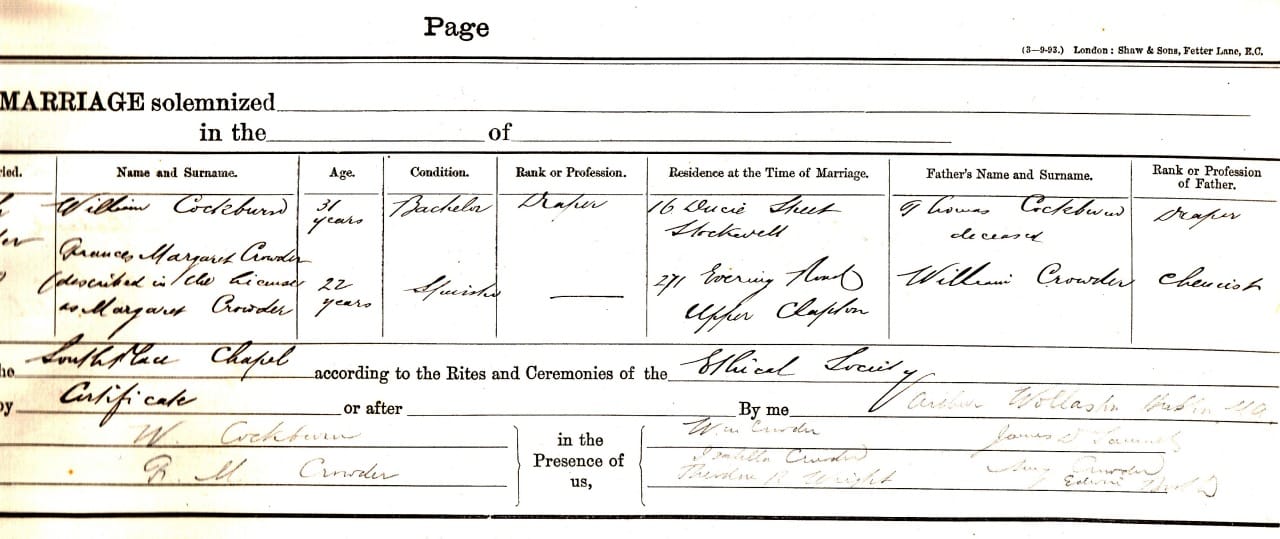 Page
(3—9—93.) London: Shaw & Sons, Fetter Lane, E.C.
MARRIAGE solemnized
in the of
ried. Name and Surname. Age. Condition. Rank or Profession. Residence at the Time of Marriage. Father's Name and Surname. Rank or Profession of Father.
William Cockburn 31 years Bachelor Draper 16 Ducie Street Stockwell Thomas Cockburn deceased Draper
Frances Margaret Crowder
(described in the license
as Margaret Crowder 22 years Spinster 271 Evering Road Upper Clapton William Crowder Chemist
South Place Chapel according to the Rites and Ceremonies of the Ethical Society
Certificate or after By me Wollaston
W. Cockburn in the Wm Crowder James
F. M. Crowder Presence of Isabella Crowder Crowder
us, Theodore R Wright Edwin